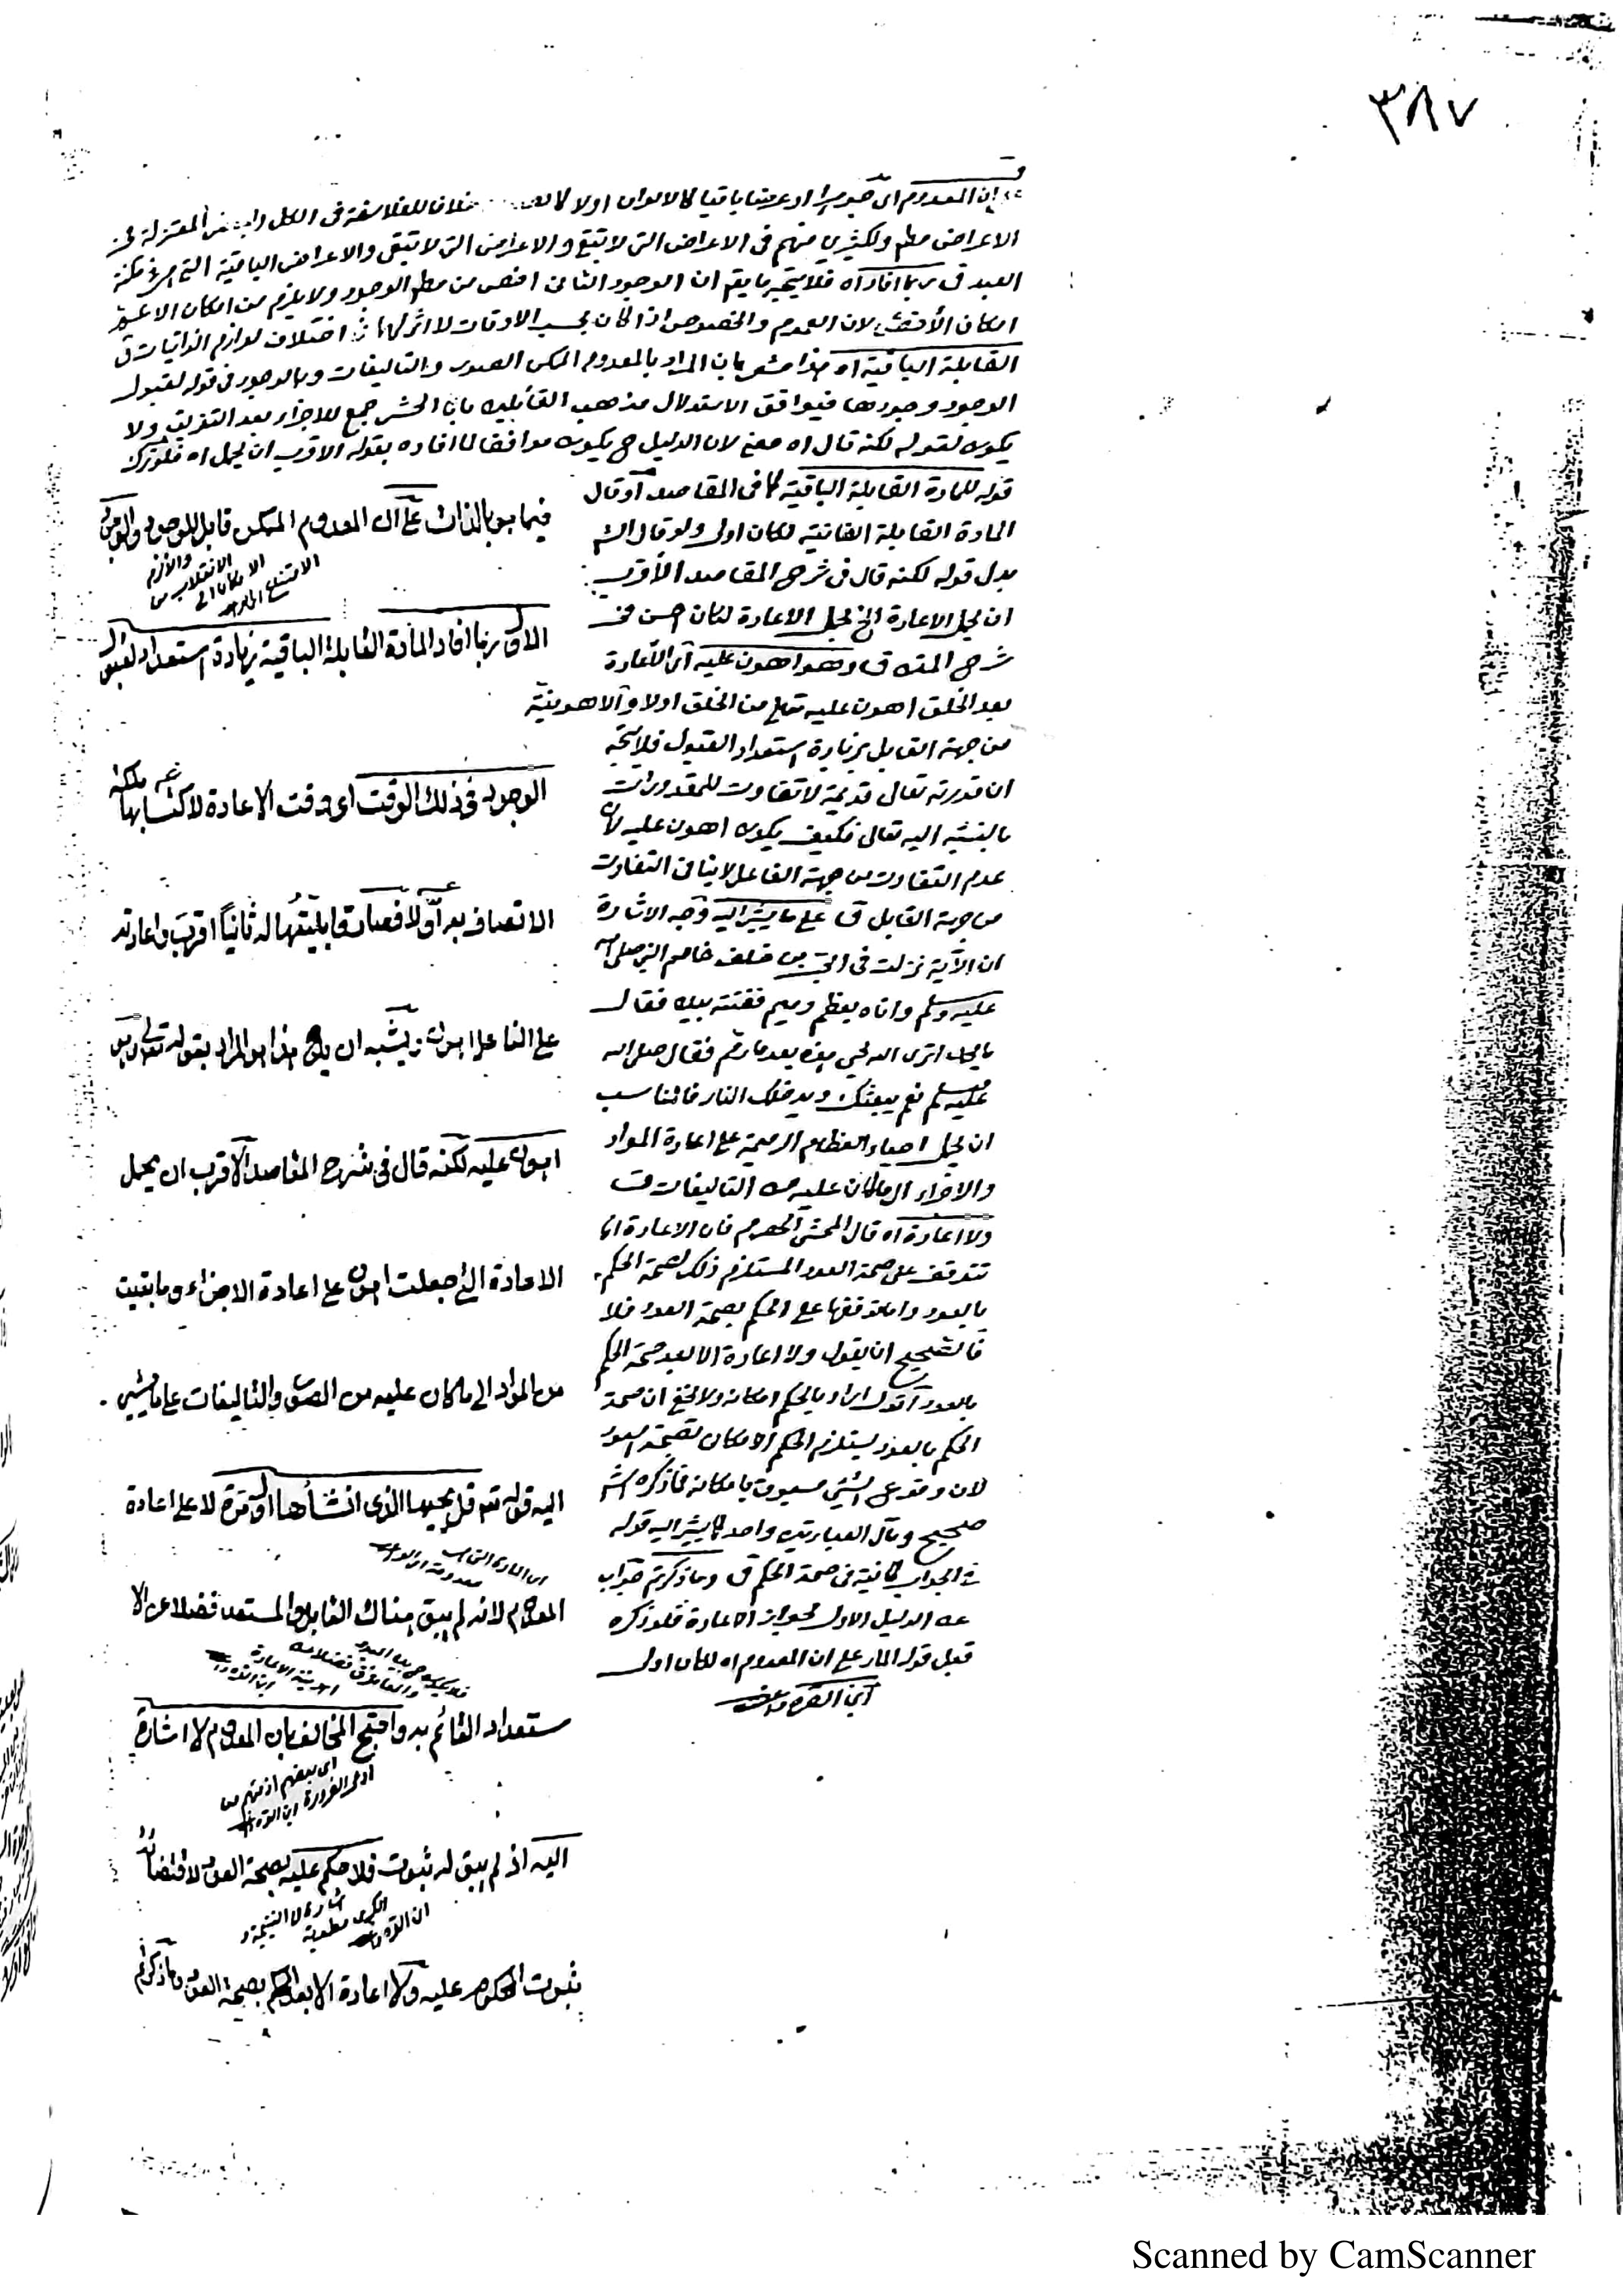 ٣٨٧
ان المعدوم اى جوهرا او عرضا باقيا كالالوان اولا كا خلافا للفلاسفة فى الكل ولبعض المعتزلة فى
الاعراض مطم ولكثير منهم فى الاعراض التى لا تبقى والاعراض الباقية التى
العبد ق ربما افاد اه فلا يتجه ما يقم ان الوجود الثانى اخص من مطم الوجود ولا يلزم من امكان الاعم
امكان الأخص لان العموم والخصوص اذا كان بحسب الاوقات لا اثر لهما فى اختلاف لوازم الذاتيات ق
القابلة الباقية اه هذا مشعر بان المراد بالمعدوم الممكن الصور والتاليفات وبالوجود فى قوله لقبول
الوجود وجودها فيوافق الاستدلال مذهب القائلين بان الحشر جمع للاجزاء بعد التفريق ولا
يكون لقوله لكنه قال اه معنى لان الدليل ح يكون موافقا لما افاده بقوله الاقرب ان يحمل اه فلو ترك
قوله للمادة القابلة الباقية كما فى المقاصد او قال
المادة القابلة الفانية لكان اولى ولو قال الش
بدل قوله لكنه قال فى شرح المقاصد الأقرب
ان يحمل الاعادة الخ يحمل الاعادة لكان احسن فى
شرح المتن ق وهو اهون عليه اى الاعادة
بعد الخلق اهون عليه تعالى من الخلق اولا والاهونية
من جهة القابل بزيادة استعداد القبول فلا يتجه
ان قدرته تعالى قديمة لا تفاوت للمقدورات
بالنسبة اليه تعالى فكيف يكون اهون عليه لان
عدم التفاوت من جهة الفاعل لا ينافى التفاوت
من جهة القابل ق على ما يشير اليه وجه الاشارة
ان الآية نزلت فى ابى بن خلف خاصم النبى صلى الله
عليه وسلم واتاه بعظم رميم ففتته بيده فقال
يا محمد اترى الله يحيى هذه بعد ما رم فقال صلى الله
عليه وسلم نعم يبعثك ويدخلك النار فالمناسب
ان يحمل احياء العظام الرميمة على اعادة المواد
والاجزاء الى ما كان عليه من التاليفات ق
ولا اعادة اه قال المحشى المرحوم فان الاعادة انما
تتوقف على صحة العود المستلزم ذلك لصحة الحكم
بالعود واما توقفها على الحكم بصحة العود فلا
فالصحيح ان يقول ولا اعادة الا بعد صحة الحكم
بالعود اقول اراد بالحكم امكانه ولا يخفى ان صحة
الحكم بالعود يستلزم الحكم الامكان لصحة العود
لان وقوع الشئ مسبوق بامكانه فما ذكره الش
صحيح ومآل العبارتين واحد كما يشير اليه قوله
فى الجواب كافية فى صحة الحكم ق وما ذكرتم جواب
عن الدليل الاول لجواز الاعادة فلو ذكره
قبل قوله المار على ان المعدوم اه لكان اولى
ابن القره داغى
فيما هو بالذات على ان المعدوم الممكن قابل للوجود والوجود
والا لزم
الانقلاب من
الامكان الى
الامتناع
الاول ربما افاد المادة القابلة الباقية زيادة استعداد لقبول
الوجود فى ذلك الوقت اى وقت الاعادة لاكتسابها ملكة
الاتصاف به اولا فصارت قابليتها له ثانيا اقرب واعادته
على الفاعل اهون ويشبه ان يكون هذا هو المراد بقوله تعالى وهو
اهون عليه لكنه قال فى شرح المقاصد الأقرب ان يحمل
الاعادة التى جعلت اهون على اعادة الاجزاء وما بقيت
من المواد الى ما كان عليه من الصور والتاليفات على ما يشير
اليه قوله تعم قل يحييها الذى انشأها اول مرة لا على اعادة
المعدوم لانه لم يبق هناك القابل والمستعد فضلا عن الا
ستعداد القائم به واحتج المخالف بان المعدوم لا اشارة
اى بعضهم اذ منهم من
ادعى الضرورة ابن القره داغى
اليه اذ لم يبق له ثبوت فلا حكم عليه بصحة العود لاقتضائه
ثبوت المحكوم عليه ولا اعادة الا بعد الحكم بصحة العود وما ذكرتم
Scanned by CamScanner